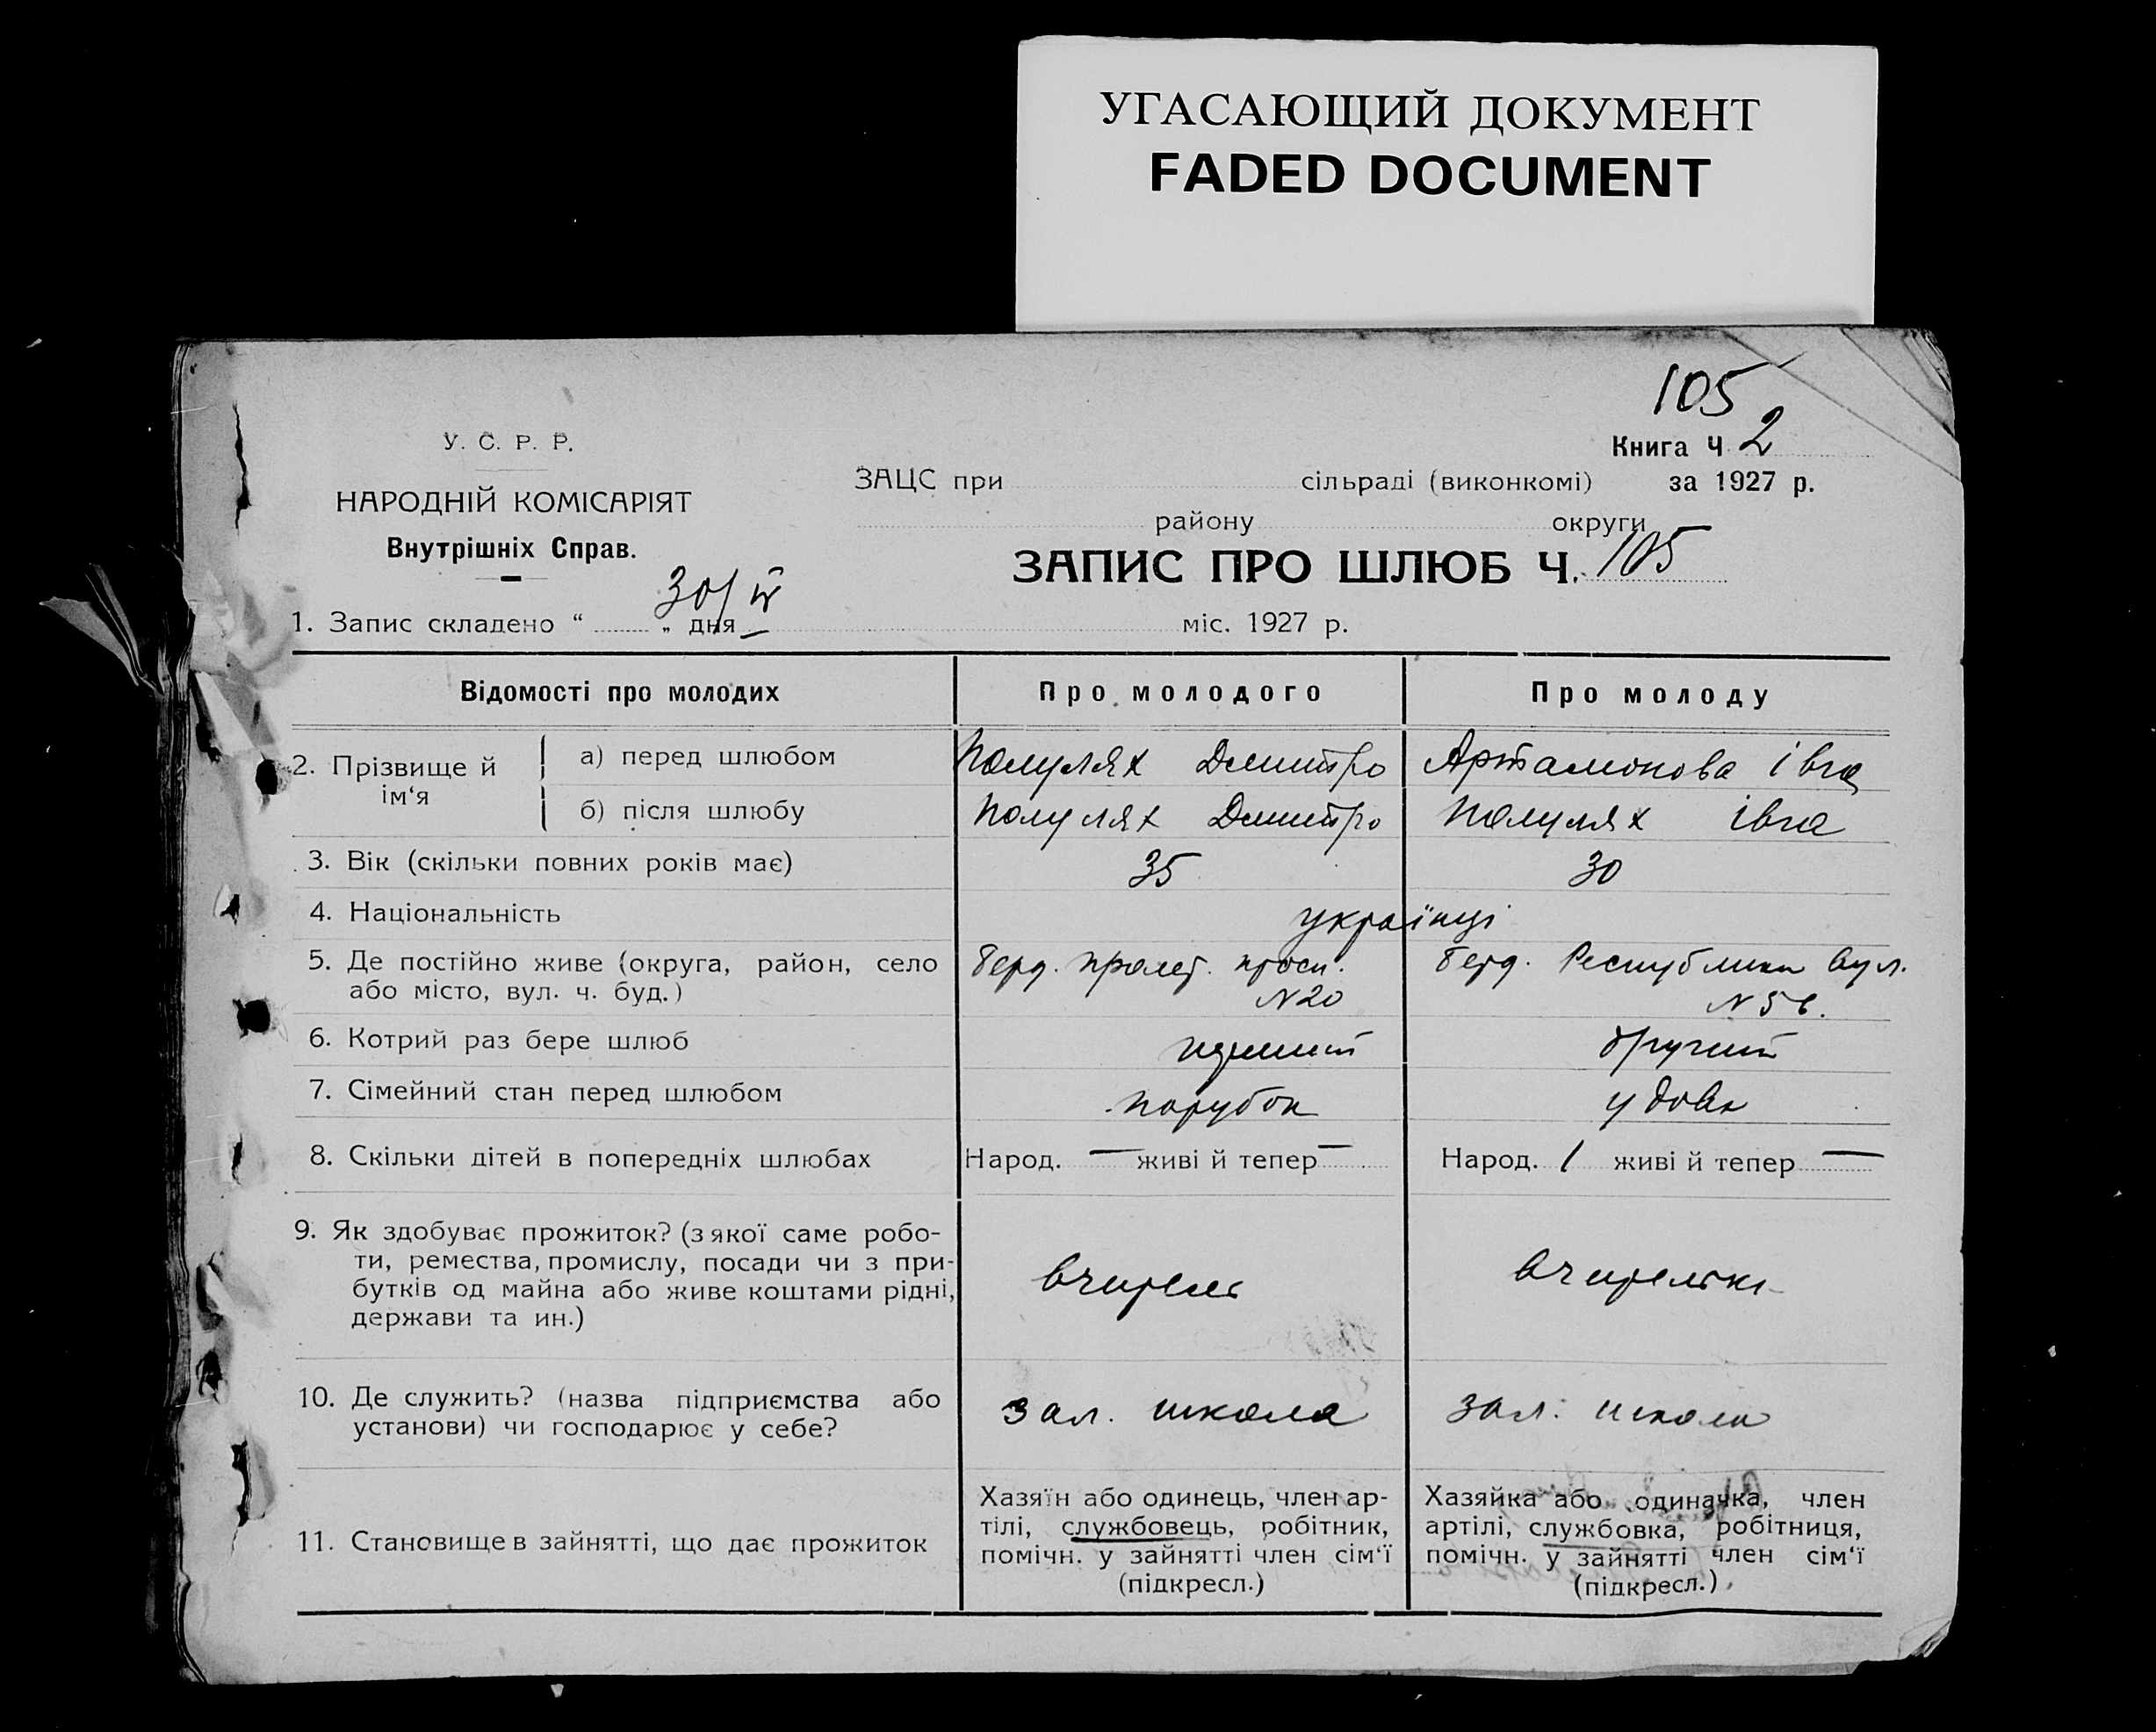 УГАСАЮЩИЙ ДОКУМЕНТ
FADED DOCUMENT
105
У. С. Р. Р.
Книга Ч 2
ЗАЦС при сільраді (виконкомі) за 1927 р.
НАРОДНІЙ КОМІСАРІЯТ
району округи
Внутрішніх Справ.
ЗАПИС ПРО ШЛЮБ Ч. 105
1. Запис складено “ „ дня 30/IV міс. 1927 р.
Відомості про молодих Про молодого Про молоду
2. Прізвище й ім‘я
а) перед шлюбом Полулях Дмитро Артамонова Івга
б) після шлюбу Полулях Дмитро Полулях Івга
3. Вік (скільки повних років має) 35 30
4. Національність українці
5. Де постійно живе (округа, район, село Берд. Пролет. просп. Берд. Республики вул.
або місто, вул. ч. буд.) N 20 N
6. Котрий раз бере шлюб перший другий
7. Сімейний стан перед шлюбом парубок удова
8. Скільки дітей в попередніх шлюбах Народ. — живі й тепер — Народ. 1 живі й тепер —
9. Як здобуває прожиток? (з якої саме робо-
ти, ремества, промислу, посади чи з при-
бутків од майна або живе коштами рідні, вчитель вчителька
держави та ин.)
10. Де служить? (назва підприємства або зал. школа зал. школа
установи) чи господарює у себе?
11. Становище в зайнятті, що дає прожиток
Хазяїн або одинець, член ар-
тілі, службовець, робітник,
помічн. у зайнятті член сім‘ї
(підкресл.)
Хазяйка або одиначка, член
артілі, службовка, робітниця,
помічн. у зайнятті член сім‘ї
(підкресл.)